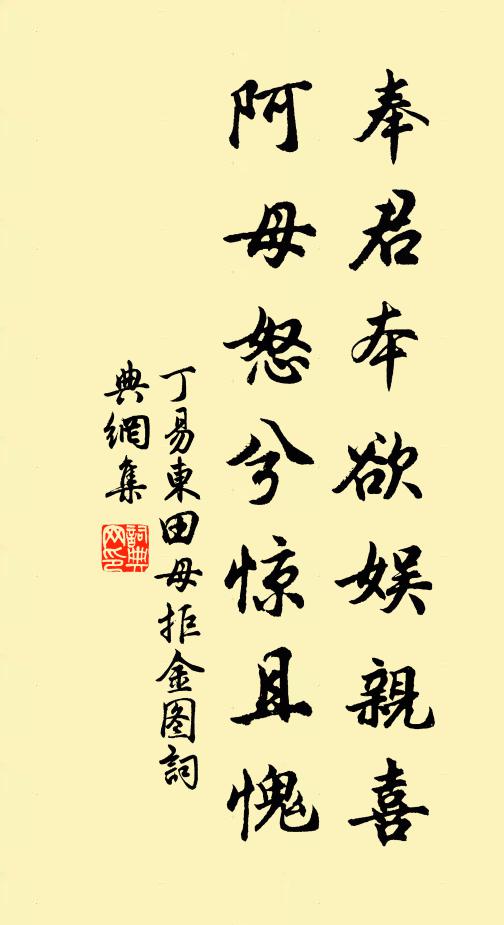 奉君本欲娱親喜
阿母怒兮惊且愧
丁易東田母拒金图詞
典網集
詞典网印